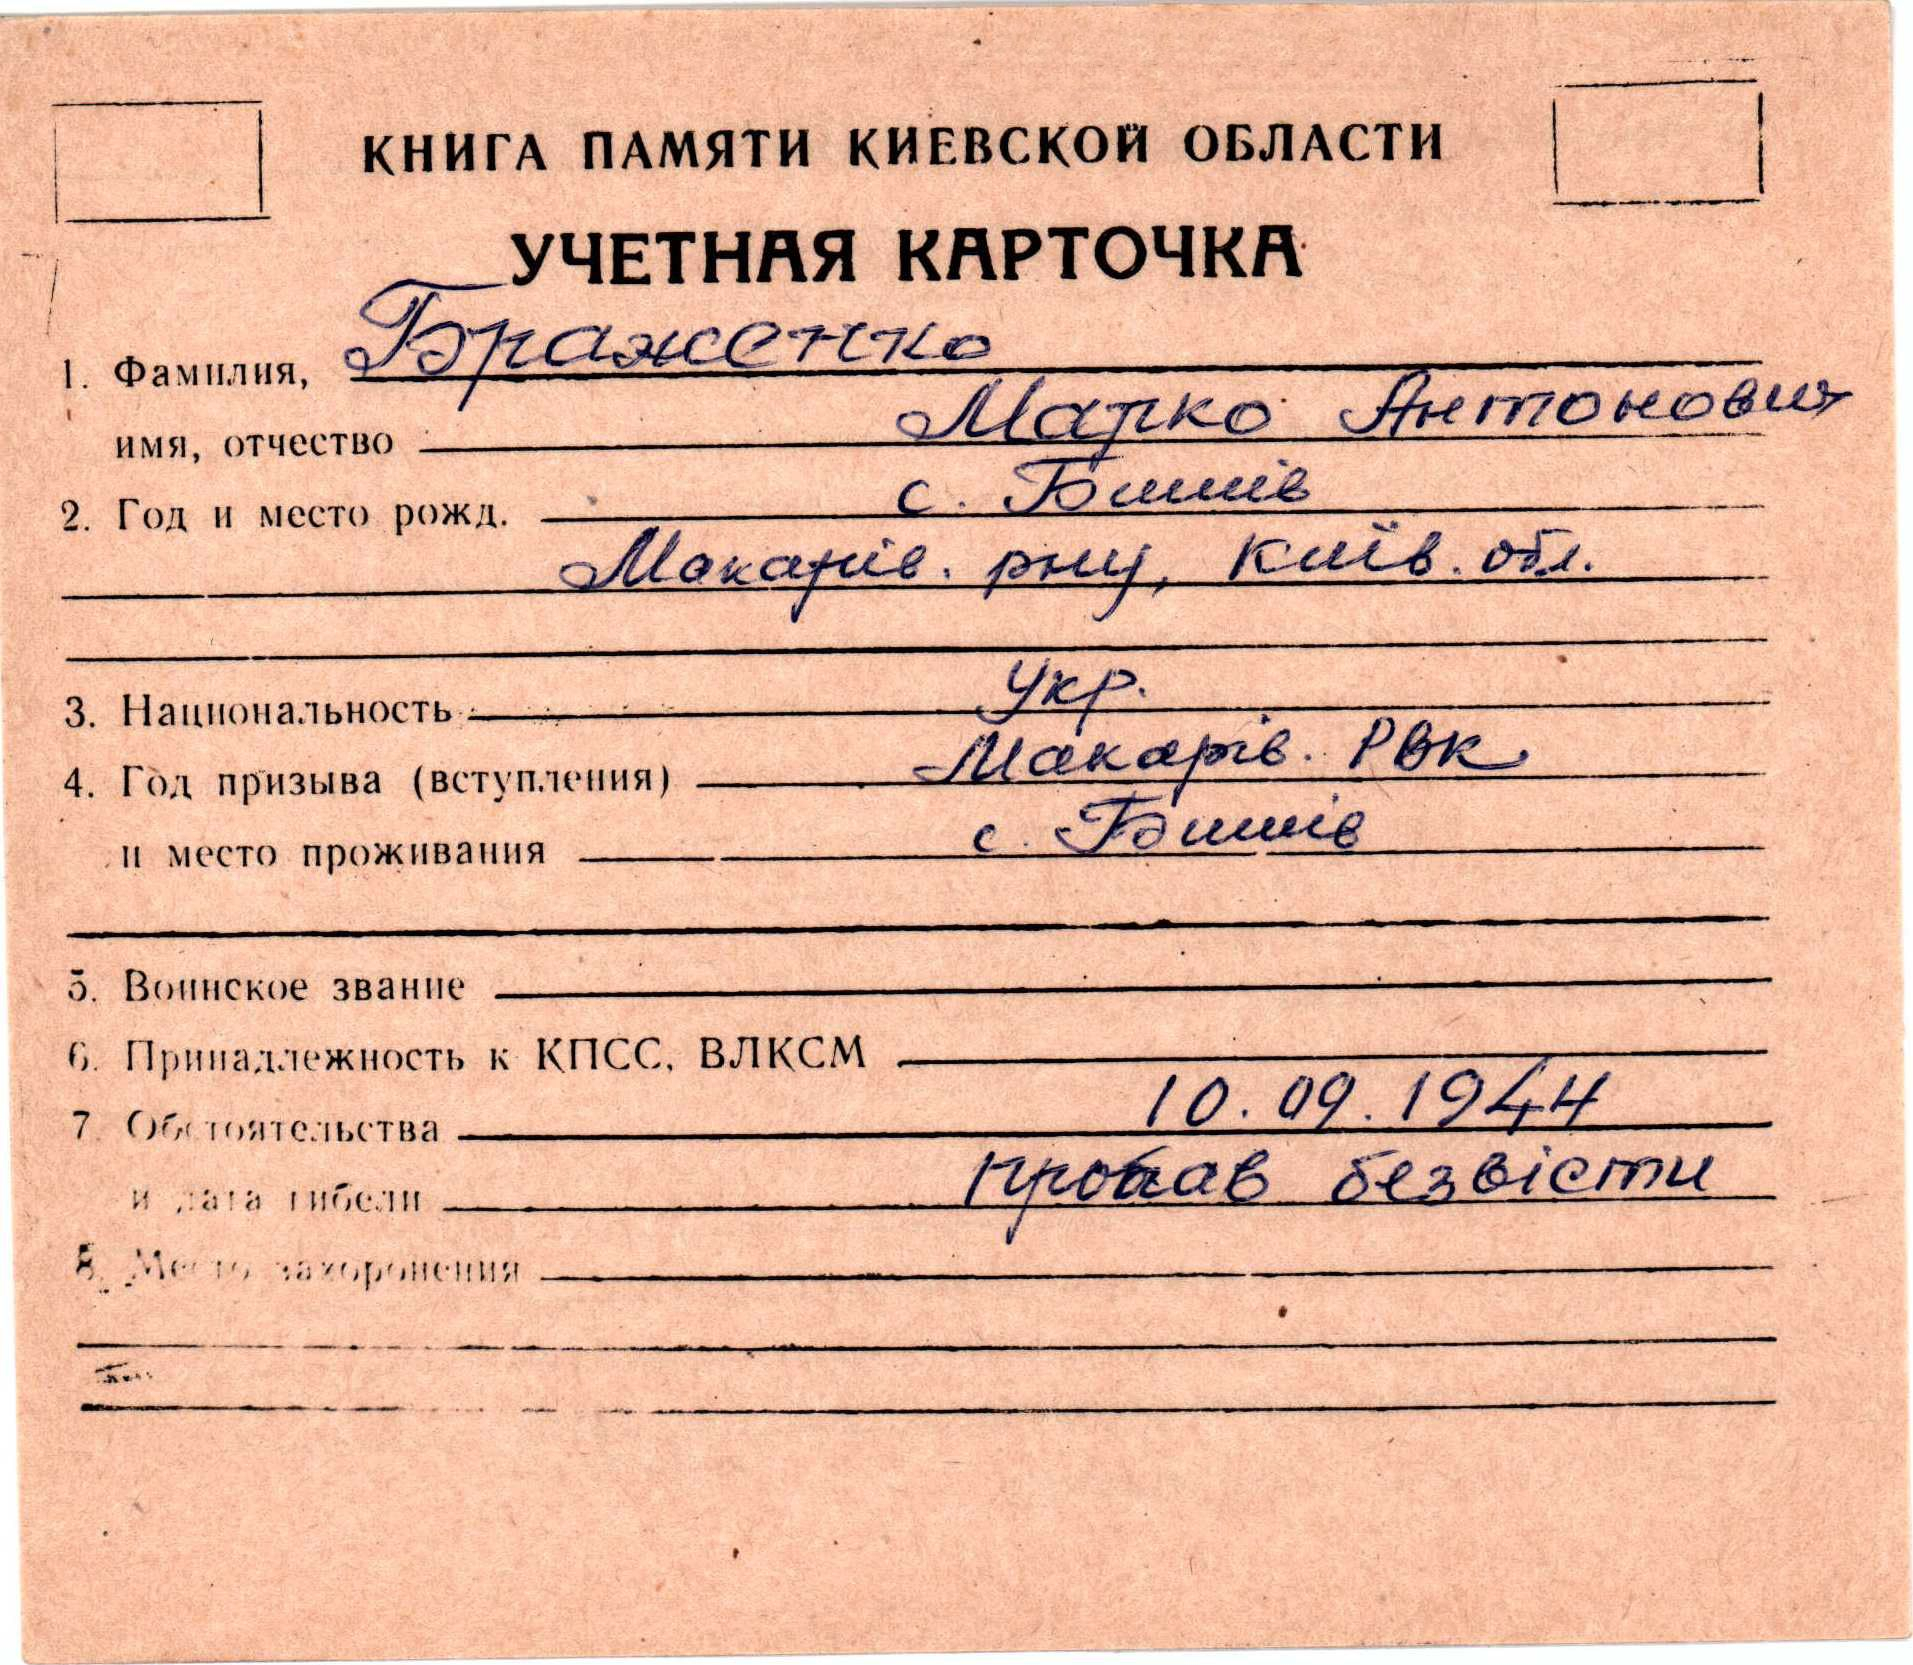 КНИГА ПАМЯТИ КИЕВСКОЙ ОБЛАСТИ
УЧЕТНАЯ КАРТОЧКА
1. Фамилия, Браженко
имя, отчество Марко Антонович
2. Год и место рожд. с. Бишів
Макарів. рну, Київ. обл.
3. Национальность Укр.
4. Год призыва (вступления) Макарів. РВК
и место проживания с. Бишів
5. Воинское звание
6. Принадлежность к КПСС, ВЛКСМ
7. Обстоятельства 10.09.1944
и дата гибели пропав безвісти
8. Место захоронения